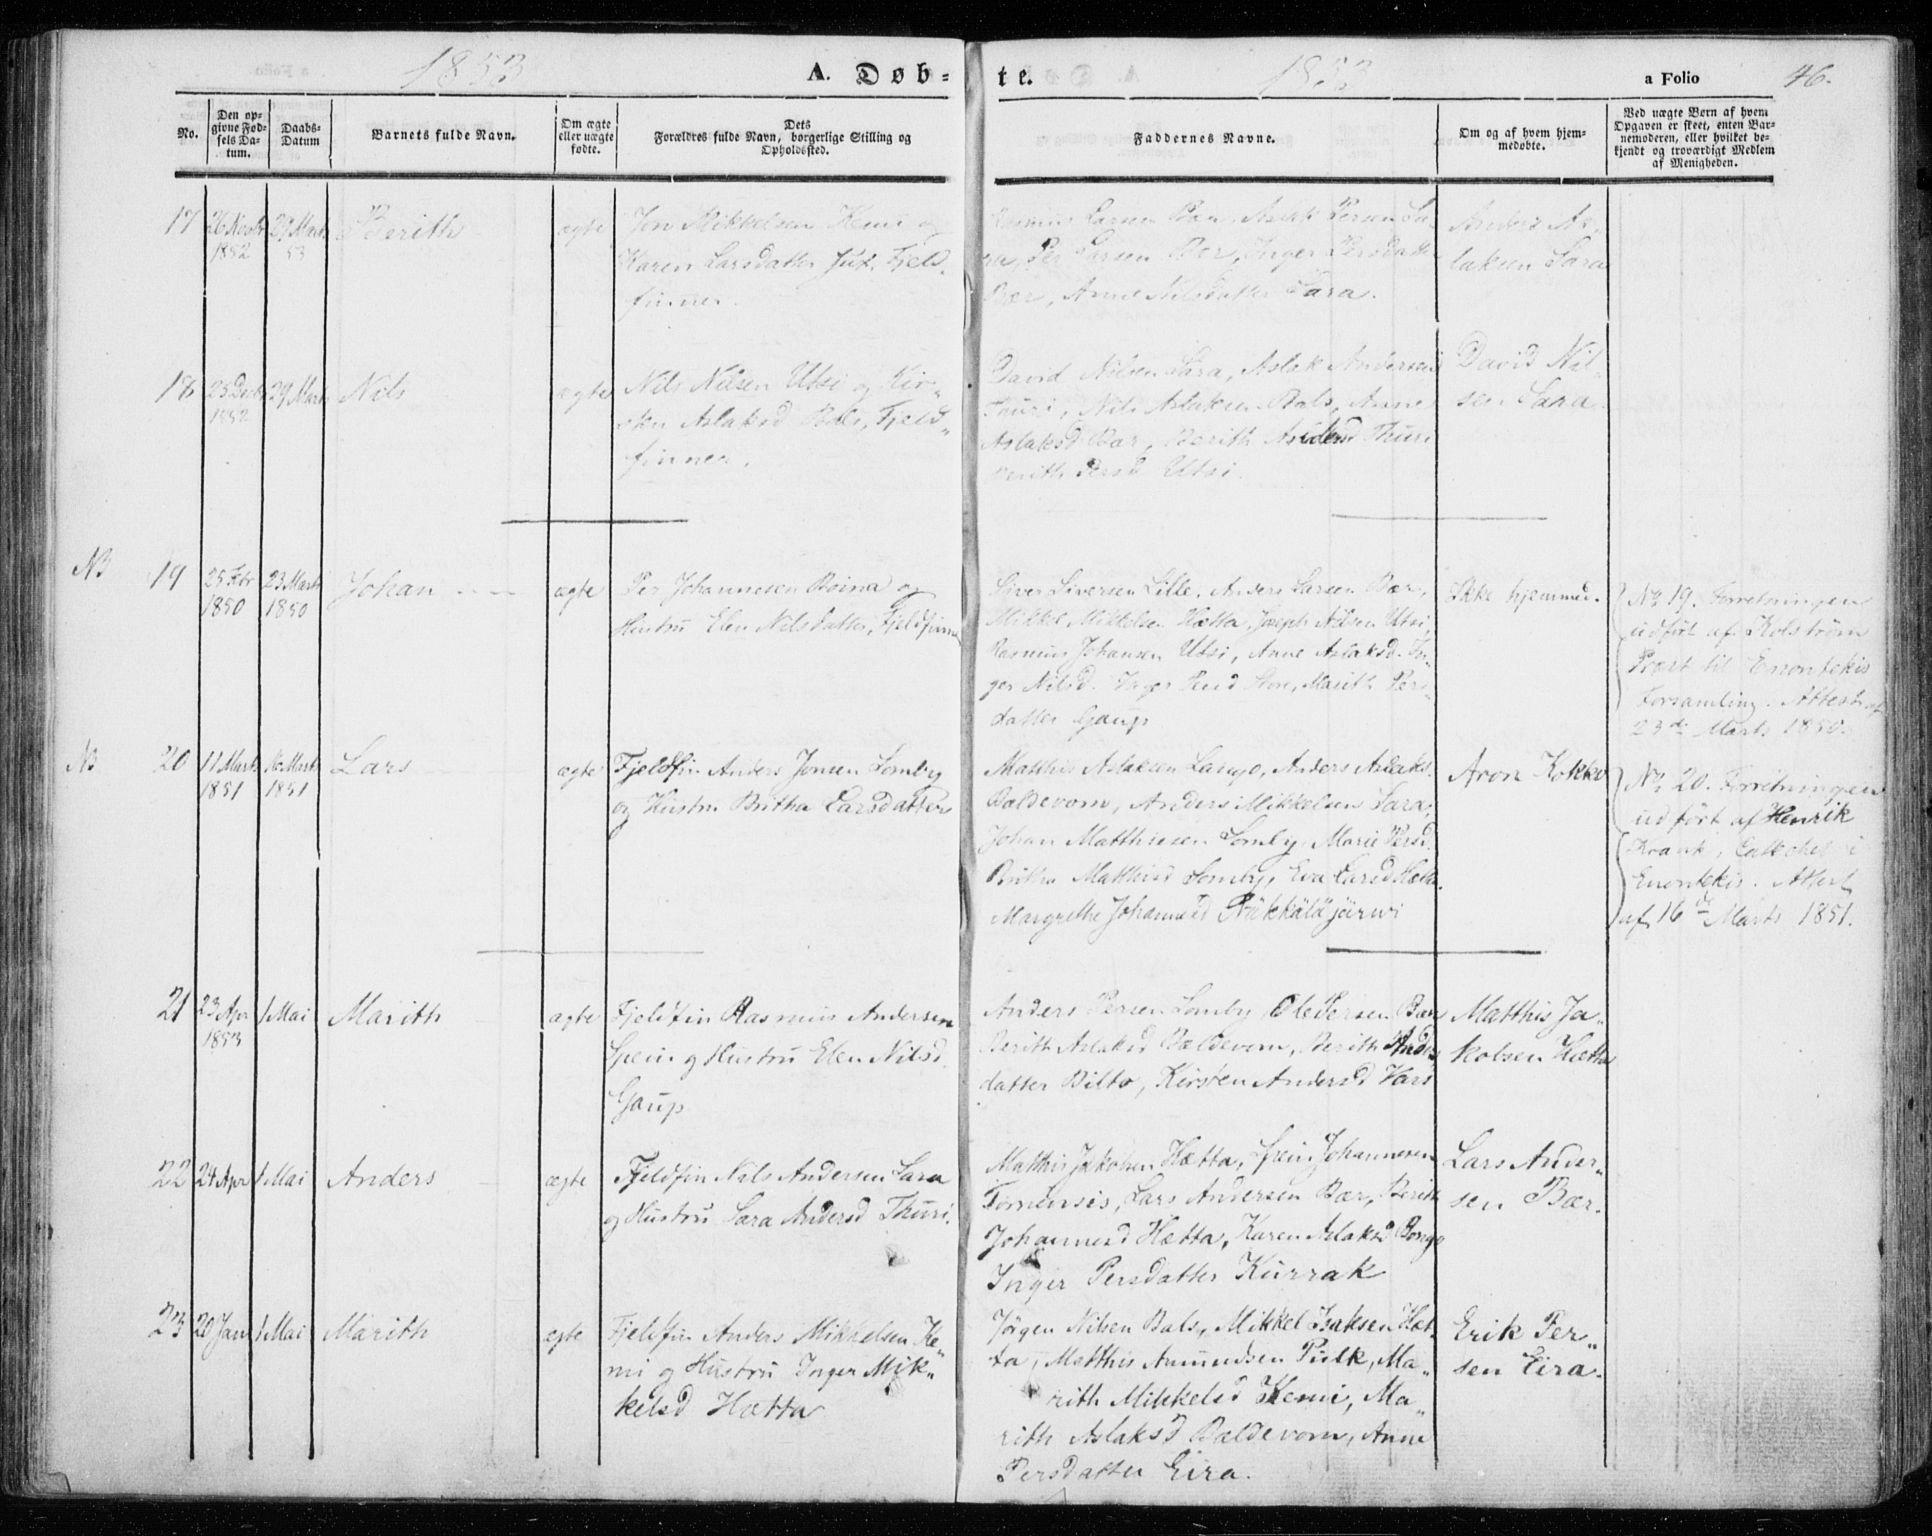 1853
A. Døb-
te.
1853
a Folio
46.
No.
Den op-
givne Fød-
sels Da-
tum.
Daabs-
Datum
Barnets fulde Navn.
Om ægte
eller uægte
fødte.
Dets
Forældres fulde Navn, borgerlige Stilling og
Opholdssted.
Faddernes Navne.
Om og af hvem hjem-
medøbte.
Ved uægte Børn af hvem
Opgaven er skeet, enten Bar-
nemoderen, eller hvilket be-
kjendt og troværdigt Medlem
af Menigheden.
17
26 Novbr
1852
27 Marts
53
Berith
ægte
Jon Mikkelsen Kemi og
Karen Larsdatter Jux, Fjeld-
finner.
Rasmus Larsen Bær, Aslak Persen Sa-
ra, Per Larsen Bær, Inger Persdatter
Bær, Anne Nilsdatter Sara.
Anders As-
laksen Sara
18
25 Decbr
1852
29 Marts
Nils
ægte
Nils Nilsen Utsi og Kir-
sten Aslaksd Bals, Fjeld-
finner.
David Nilsen Sara, Aslak Andersen
Thuri, Nils Aslaksen Bals, Anne
Aslaksd Bær, Berith Andersd Thuri
Berith Persd Utsi.
David Nil-
sen Sara
NB
19
25 Febr
1850
23 Marts
1850
Johan
ægte
Per Johannesen Boina og
Hustru Elen Nilsdatter, Fjeldfinner
Siver Siversen Lille, Anders Larsen Bær,
Mikkel Mikkelsen Hætta, Joseph Nilsen Utsi,
Rasmus Johansen Utsi, Anne Aslaksd. In-
ger Nilsd. Inger Store, Marith Pers-
datter Gaup
Ikke hjemmed.
No 19. Forretningen
udført af Kolstrøm
Præst til Enontekis
Forsamling. Attest af
23de Marts 1850.
NB
20
11 Marts
1851
16 Marts
1851
Lars
ægte
Fjeldfin Anders Jonsen Lomby
og Hustru Britha Larsdatter
Matthis Aslaksen Lango, Anders Aslaks.
Baldevom, Anders Mikkelsen Sara,
Johan Matthiesen Somby, Marie Persd.
Britha Matthisd Somby, Eva Larsd Hætta.
Margrethe Johannesd Näkkäläjärwi
Aron Kokko
No 20. Forretningen
udført af Henrik
Kvank, Catechet i
Enontekis. Attest
af 16de Marts 1851.
21
23 Apr
1853
1 Mai
Marith
ægte
Fjeldfin Rasmus Andersen
Spein og Hustru Elen Nilsd.
Gaup
Anders Persen Lomby, Ole Persen Bær
Berith Aslaksd Baldevom, Berith Anders
datter Bilto, Kirsten Andersd Vars
Matthis Ja-
kobsen Hætta
22
24 Apr
1 Mai
Anders
ægte
Fjeldfin Nils Andersen Sara
og Hustru Sara Andersd Thuri.
Matthis Jakobsen Hætta, Spein Johannesen
Tornensis, Lars Andersen Bær, Berith
Johannesd Hætta, Karen Aslaksd Bongo
Inger Persdatter Kurrak
Lars Ander-
sen Bær.
23
20 Jan
1 Mai
Marith
ægte
Fjeldfin Anders Mikkelsen Ke-
mi og Hustru Inger Mik-
kelsd Hætta
Jörgen Nilsen Bals, Mikkel Isaksen Hæt-
ta, Matthis Amundsen Pulk, Ma-
rith Mikkelsd Kemi, Ma-
rith Aslaksd Baldevom, Anne
Persdatter Eira.
Erik Per-
sen Eira.